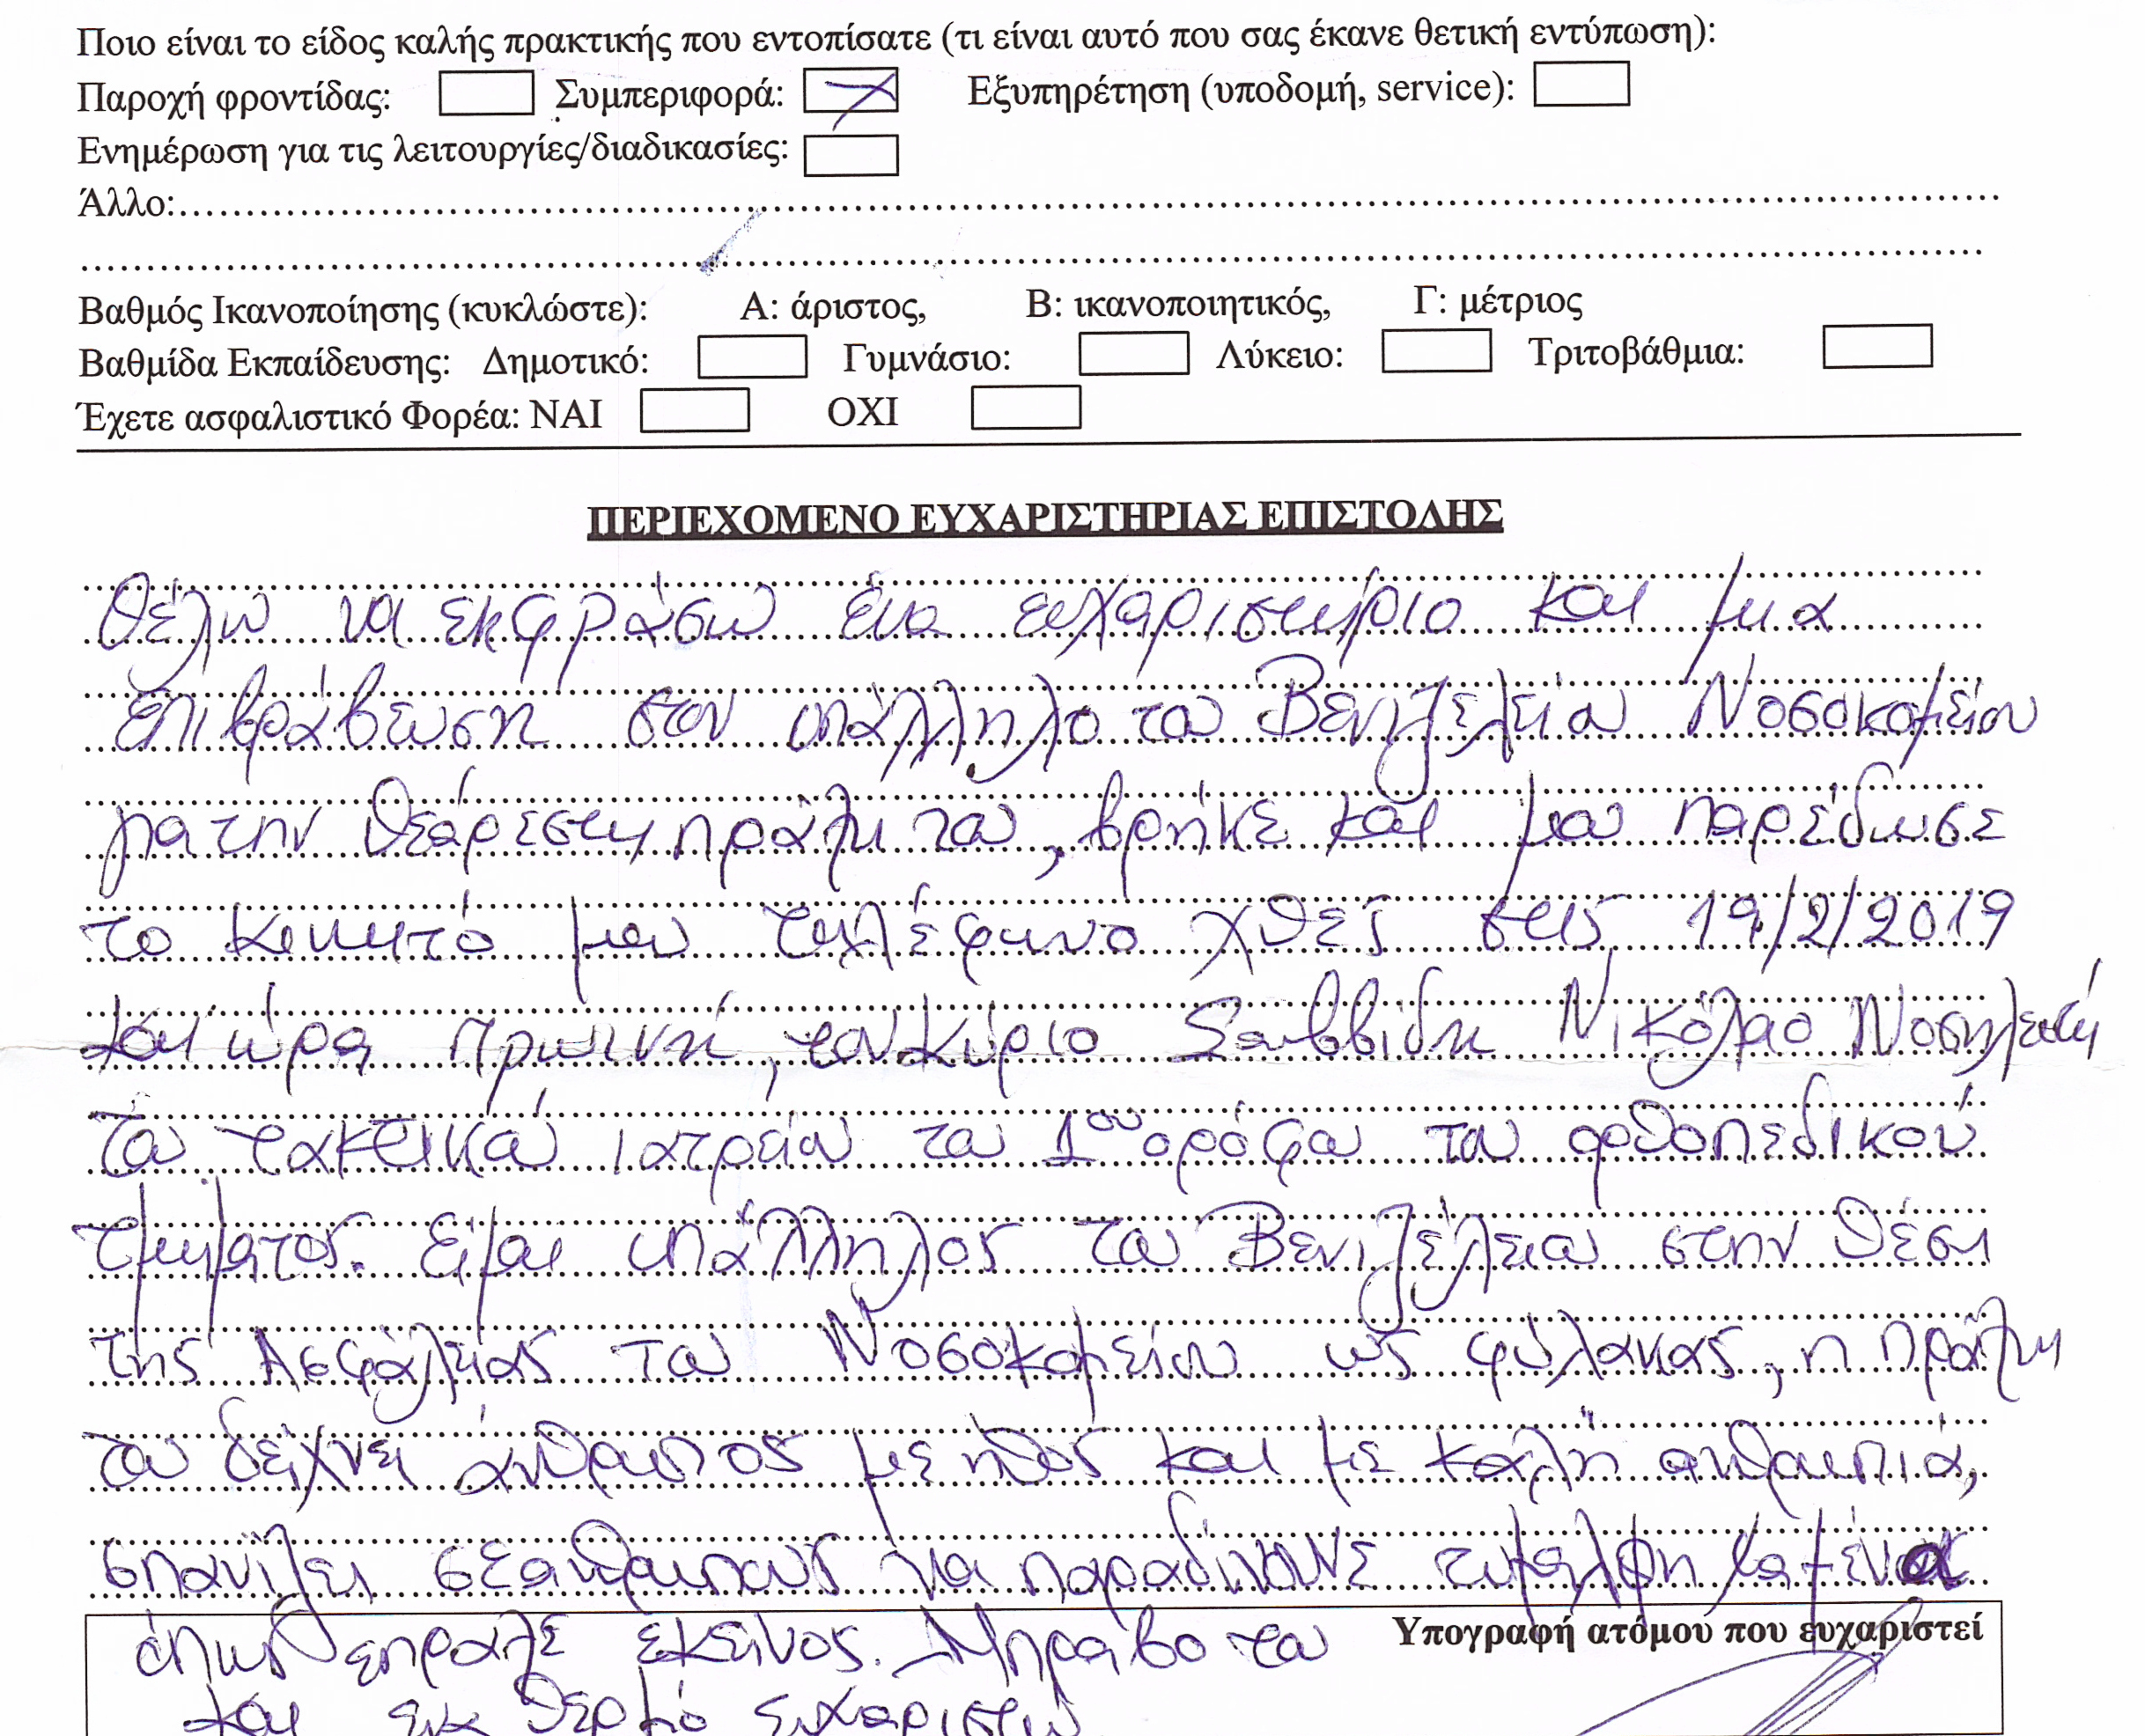 Ποιο είναι το είδος καλής πρακτικής που εντοπίσατε (τι είναι αυτό που σας έκανε θετική εντύπωση):
Παροχή φροντίδας: Συμπεριφορά: Εξυπηρέτηση (υποδομή, service):
Ενημέρωση για τις λειτουργίες/διαδικασίες:
Άλλο:
Βαθμός Ικανοποίησης (κυκλώστε): Α: άριστος, Β: ικανοποιητικός, Γ: μέτριος
Βαθμίδα Εκπαίδευσης: Δημοτικό: Γυμνάσιο: Λύκειο: Τριτοβάθμια:
Έχετε ασφαλιστικό Φορέα: ΝΑΙ ΟΧΙ
ΠΕΡΙΕΧΟΜΕΝΟ ΕΥΧΑΡΙΣΤΗΡΙΑΣ ΕΠΙΣΤΟΛΗΣ
Θέλω να εκφράσω ένα ευχαριστήριο και μια
επιβράβευση στον υπάλληλο του Βενιζελείου Νοσοκομείου
για την θεάρεστη πράξη του, βρήκε και μου παρέδωσε
το κινητό μου τηλέφωνο χθές στις 19/2/2019
και ώρα πρωινή, τον κύριο Σαββίδη Νικόλαο Νοσηλευτή
του τακτικού ιατρείου του 1ου ορόφου του ορθοπεδικού
τμήματος. Είμαι υπάλληλος του Βενιζέλειου στην θέση
της Ασφάλειας του Νοσοκομείου ως φύλακας, η πράξη
του δείχνει άνθρωπος με ηθος και με κάλη ανθρωπιά,
σπανίζει σε ανθρωπους να παραδίνουνε χαμένα
όπως επραξε εκείνος. Μπράβο του Υπογραφή ατόμου που ευχαριστεί
και ενα θερμό ευχαριστώ